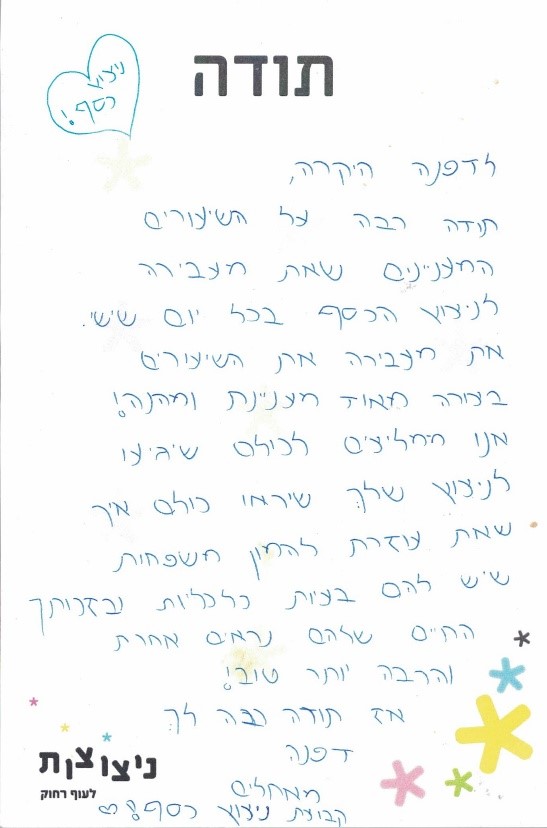 תודה
ניצוץ
כסף!
לדפנה היקרה,
תודה רבה על השיעורים
המעניינים שאת מעבירה
לניצוץ הכסף בכל יום שישי.
את מעבירה את השיעורים
בצורה מאוד מעניינת ומהנה!
אנו ממליצים לכולם שיגיעו
לניצוץ שלך שיראו כולם איך
שאת עוזרת להמון משפחות
שיש להם בעיות כלכליות ובזכותך
החיים שלהם נראים אחרת
והרבה יותר טוב!
אז תודה רבה לך
דפנה
מאחלים
קבוצת ניצוץ כסף!
ניצוצות
לעוף רחוק